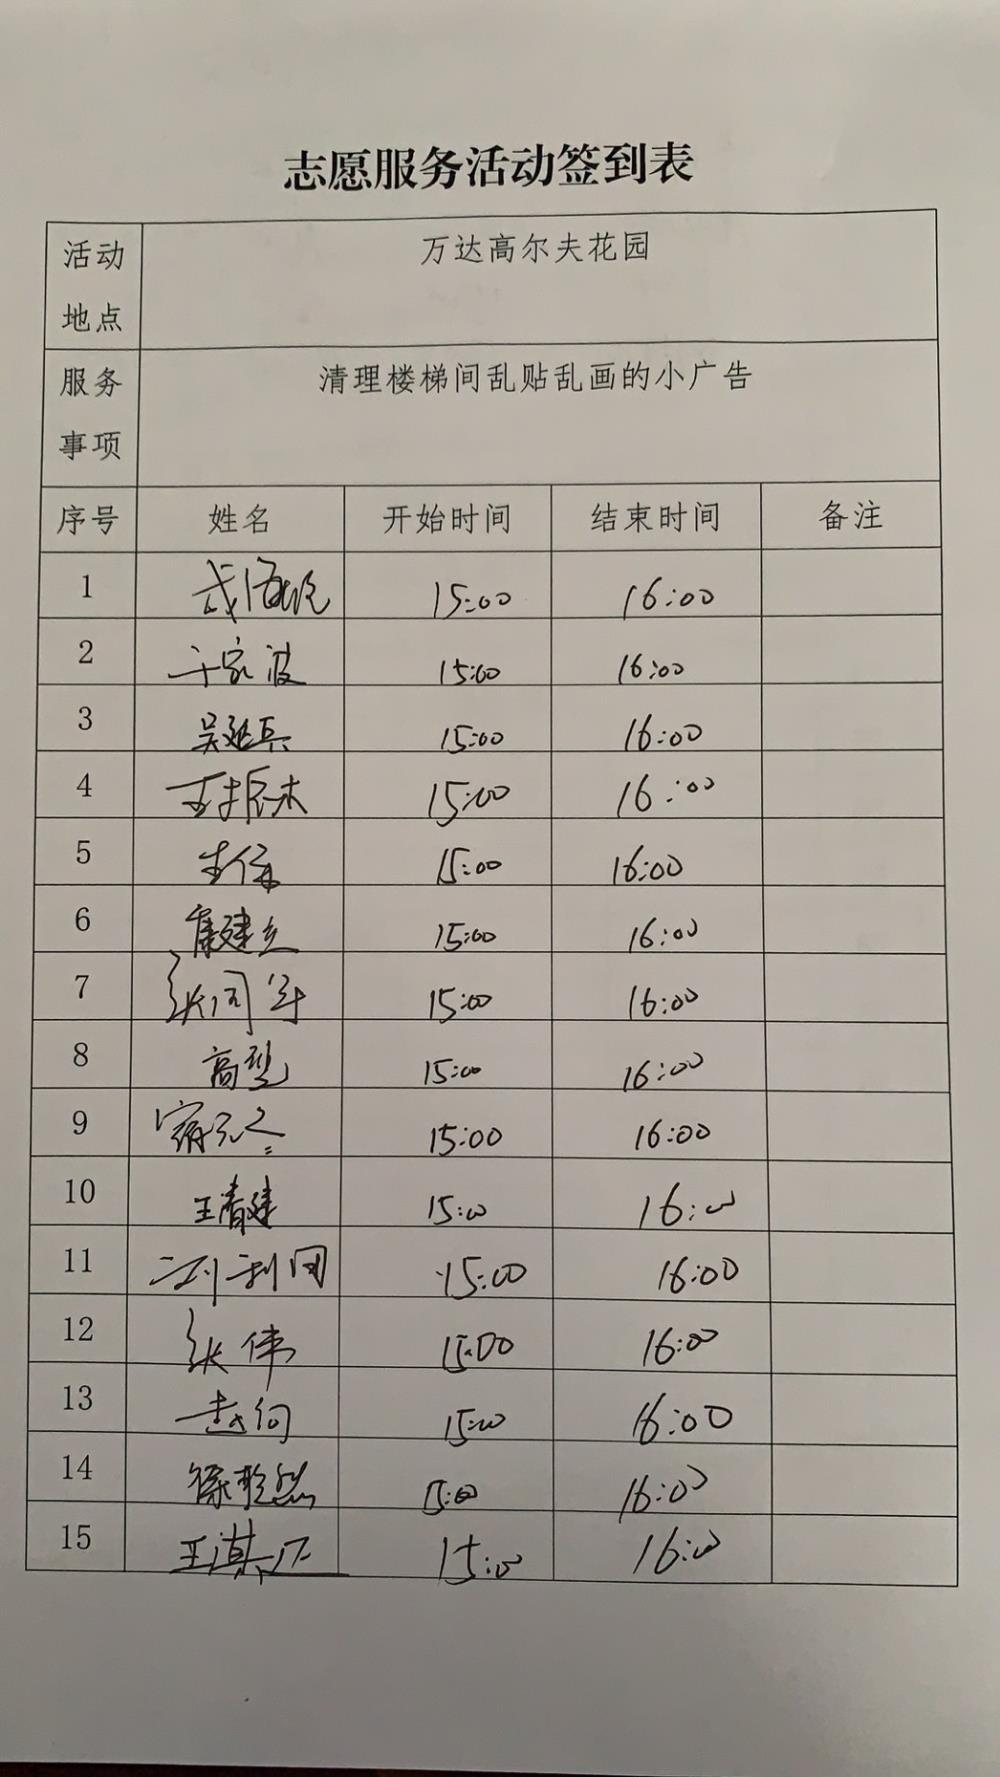 志愿服务活动签到表
活动地点 万达高尔夫花园
服务事项 清理楼梯间乱贴乱画的小广告
序号 姓名 开始时间 结束时间 备注
1 15:00 16:00
2 于家波 15:00 16:00
3 吴延兵 15:00 16:00
4 15:00 16:00
5 15:00 16:00
6 15:00 16:00
7 15:00 16:00
8 15:00 16:00
9 15:00 16:00
10 王春建 15:00 16:00
11 刘利国 15:00 16:00
12 张伟 15:00 16:00
13 15:00 16:00
14 15:00 16:00
15 15:00 16:00